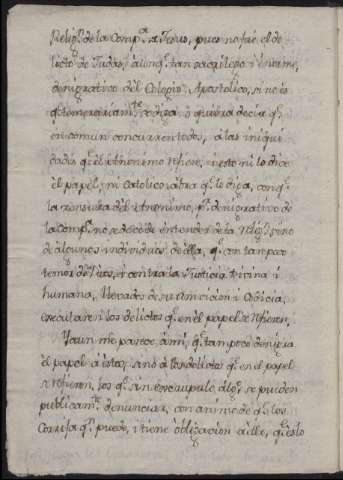 Relig.ⁿ de la Comp.ª de Jesus, pues no fue el de-
licto de Judas, aunq.ᵉ tan sacrilego i enorme,
denigrativo del Colegio Apostolico, si no es
q.ᵉ temerariam.ᵗᵉ se diga, o quiera decir q.ᵉ
en comun concurren todos, a las iniqui-
dades q.ᵉ el Anonimo refiere, i esto ni lo dice
el papel, ni catolico abra q.ᵉ lo diga, conq.ᵉ
la censura del Anonimo, q.ᵉ denigrativo de
la Comp.ª no se debe de entender de la Relig.ⁿ sino
de algunos individuos de ella, q.ᵉ con tan poco
temor de Dios, i contra la Justicia divina i
humana, llevados de su Ambicion i Codicia,
executaren los delictos q.ᵉ en el papel se refieren,
Y aun me parece ami, q.ᵉ tampoco denigra
el papel a estos, sino a los delictos q.ᵉ en el papel
se refieren, los q.ᵉ sin escrupulo alg.º se pueden
publicam.ᵗᵉ denunciar, con animo de q.ᵉ los
Corrija q.ⁿ puede, i tiene obligacion a ello, q.ᵉ esto